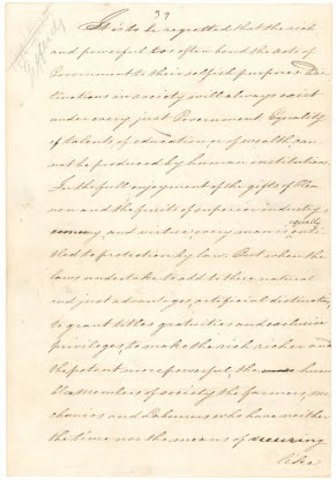 39
It is to be regretted that the rich
and powerful too often bend the acts of
Government to their selfish purposes. Dis-
tinctions in society will always exist
under every just Government. Equality
of talents, of education, or of wealth can
not be produced by human institutions.
In the full enjoyment of the gifts of Hea
ven and the fruits of superior industry,
economy, and virtue, every man is equally enti
tled to protection by law. But when the
laws undertake to add to these natural
and just advantages, artificial distinctions,
to grant titles, gratuities and exclusive
privileges, to make the rich richer and
the potent more powerful, the hum
ble members of society the farmers, me
chanics and Laborers who have neither
the time nor the means of securing
like